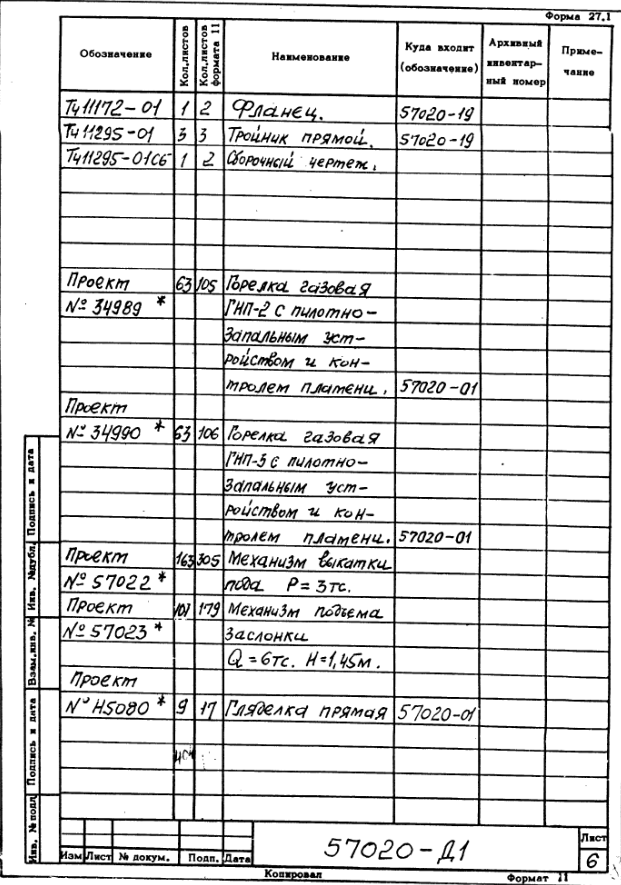 Форма 27.1
Обозначение Кол.листов Кол.листов формата 11 Наименование Куда входит (обозначение) Архивный инвентарный номер Примечание
Тч11172-01 1 2 Фланец. 57020-19
Тч11295-01 3 3 Тройник прямой. 57020-19
Тч11295-01СБ 1 2 Сборочный чертеж.
Проект 63 105 Горелка газовая
№ 34989 * ГНП-2 с пилотно-
запальным уст-
ройством и кон-
тролем пламени. 57020-01
Проект
№ 34990 * 63 106 Горелка газовая
ГНП-3 с пилотно-
запальным уст-
ройством и кон-
тролем пламени. 57020-01
Проект 163 305 Механизм выкатки
№ 57022 * пода P = 3тс.
Проект 107 179 Механизм подъема
№ 57023 * заслонки
Q = 6тс. H = 1,45м.
Проект
№ Н5080 * 9 17 Гляделка прямая 57020-01
Изм Лист № докум. Подп. Дата
57020-Д1
Лист
6
Копировал Формат 11
Инв. № подл.
Подпись и дата
Взам.инв. №
Инв. №дубл.
Подпись и дата